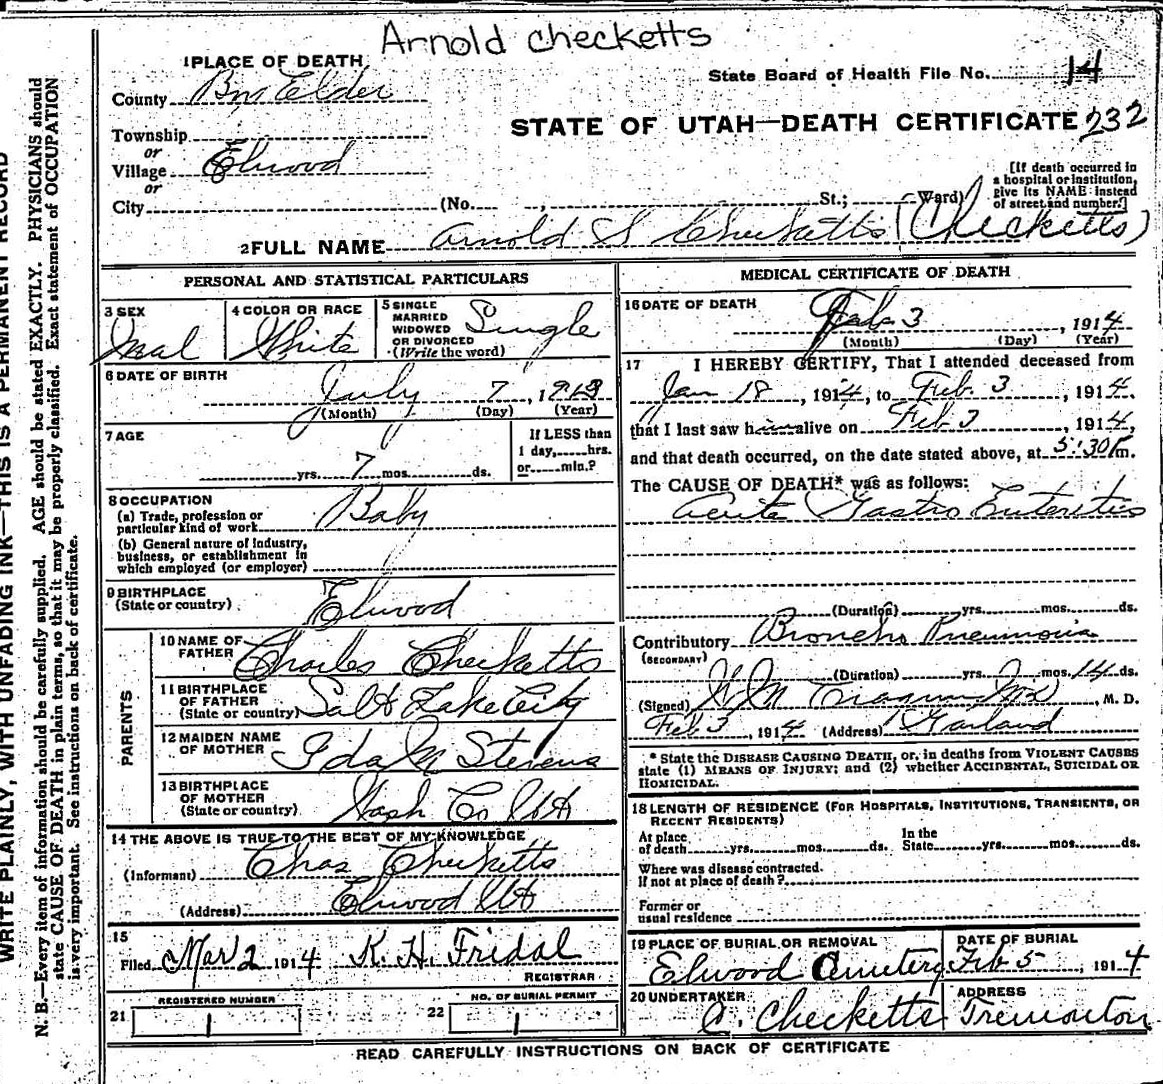 Arnold Checketts
1 PLACE OF DEATH
State Board of Health File No. 14
County Box Elder
STATE OF UTAH—DEATH CERTIFICATE 232
Township
or
Village Elwood
or
City (No. , St.; Ward)
[If death occurred in
a hospital or institution,
give its NAME instead
of street and number.]
2 FULL NAME Arnold S Checketts (Checketts)
PERSONAL AND STATISTICAL PARTICULARS
3 SEX Mal
4 COLOR OR RACE White
5 SINGLE
MARRIED
WIDOWED
OR DIVORCED
(Write the word) Single
6 DATE OF BIRTH July 7, 1913
(Month) (Day) (Year)
7 AGE
yrs. 7 mos. ds.
If LESS than
1 day, hrs.
or min.?
8 OCCUPATION
(a) Trade, profession or
particular kind of work Baby
(b) General nature of industry,
business, or establishment in
which employed (or employer)
9 BIRTHPLACE
(State or country) Elwood
PARENTS
10 NAME OF
FATHER Charles Checketts
11 BIRTHPLACE
OF FATHER
(State or country) Salt Lake City
12 MAIDEN NAME
OF MOTHER Ida M Stevens
13 BIRTHPLACE
OF MOTHER
(State or country) Wash Co Ut
14 THE ABOVE IS TRUE TO THE BEST OF MY KNOWLEDGE
(Informant) Chas Checketts
(Address) Elwood Ut
15
Filed Mar 2 1914 K. H. Fridal
REGISTRAR
21 REGISTERED NUMBER
1
22 NO. OF BURIAL PERMIT
1
MEDICAL CERTIFICATE OF DEATH
16 DATE OF DEATH Feb 3, 1914
(Month) (Day) (Year)
17 I HEREBY CERTIFY, That I attended deceased from
Jan 18, 1914, to Feb. 3, 1914.
that I last saw him alive on Feb 3, 1914,
and that death occurred, on the date stated above, at 5:30 P m.
The CAUSE OF DEATH* was as follows:
Acute Gastro Enteretis
(Duration) yrs. mos. ds.
Contributory Broncho Pneumonia
(SECONDARY)
(Duration) yrs. mos. 14 ds.
(Signed) M. D.
Feb 3, 1914 (Address) Garland
* State the DISEASE CAUSING DEATH, or, in deaths from VIOLENT CAUSES
state (1) MEANS OF INJURY; and (2) whether ACCIDENTAL, SUICIDAL OR
HOMICIDAL.
18 LENGTH OF RESIDENCE (FOR HOSPITALS, INSTITUTIONS, TRANSIENTS, OR
RECENT RESIDENTS)
At place
of death yrs. mos. ds.
In the
State yrs. mos. ds.
Where was disease contracted.
if not at place of death?
Former or
usual residence
19 PLACE OF BURIAL OR REMOVAL
Elwood Cemetery
DATE OF BURIAL
Feb 5, 1914
20 UNDERTAKER
C. Checketts
ADDRESS
Tremonton
READ CAREFULLY INSTRUCTIONS ON BACK OF CERTIFICATE
WRITE PLAINLY, WITH UNFADING INK—THIS IS A PERMANENT RECORD
N. B.—Every item of information should be carefully supplied. AGE should be stated EXACTLY. PHYSICIANS should
state CAUSE OF DEATH in plain terms, so that it may be properly classified. Exact statement of OCCUPATION
is very important. See instructions on back of certificate.